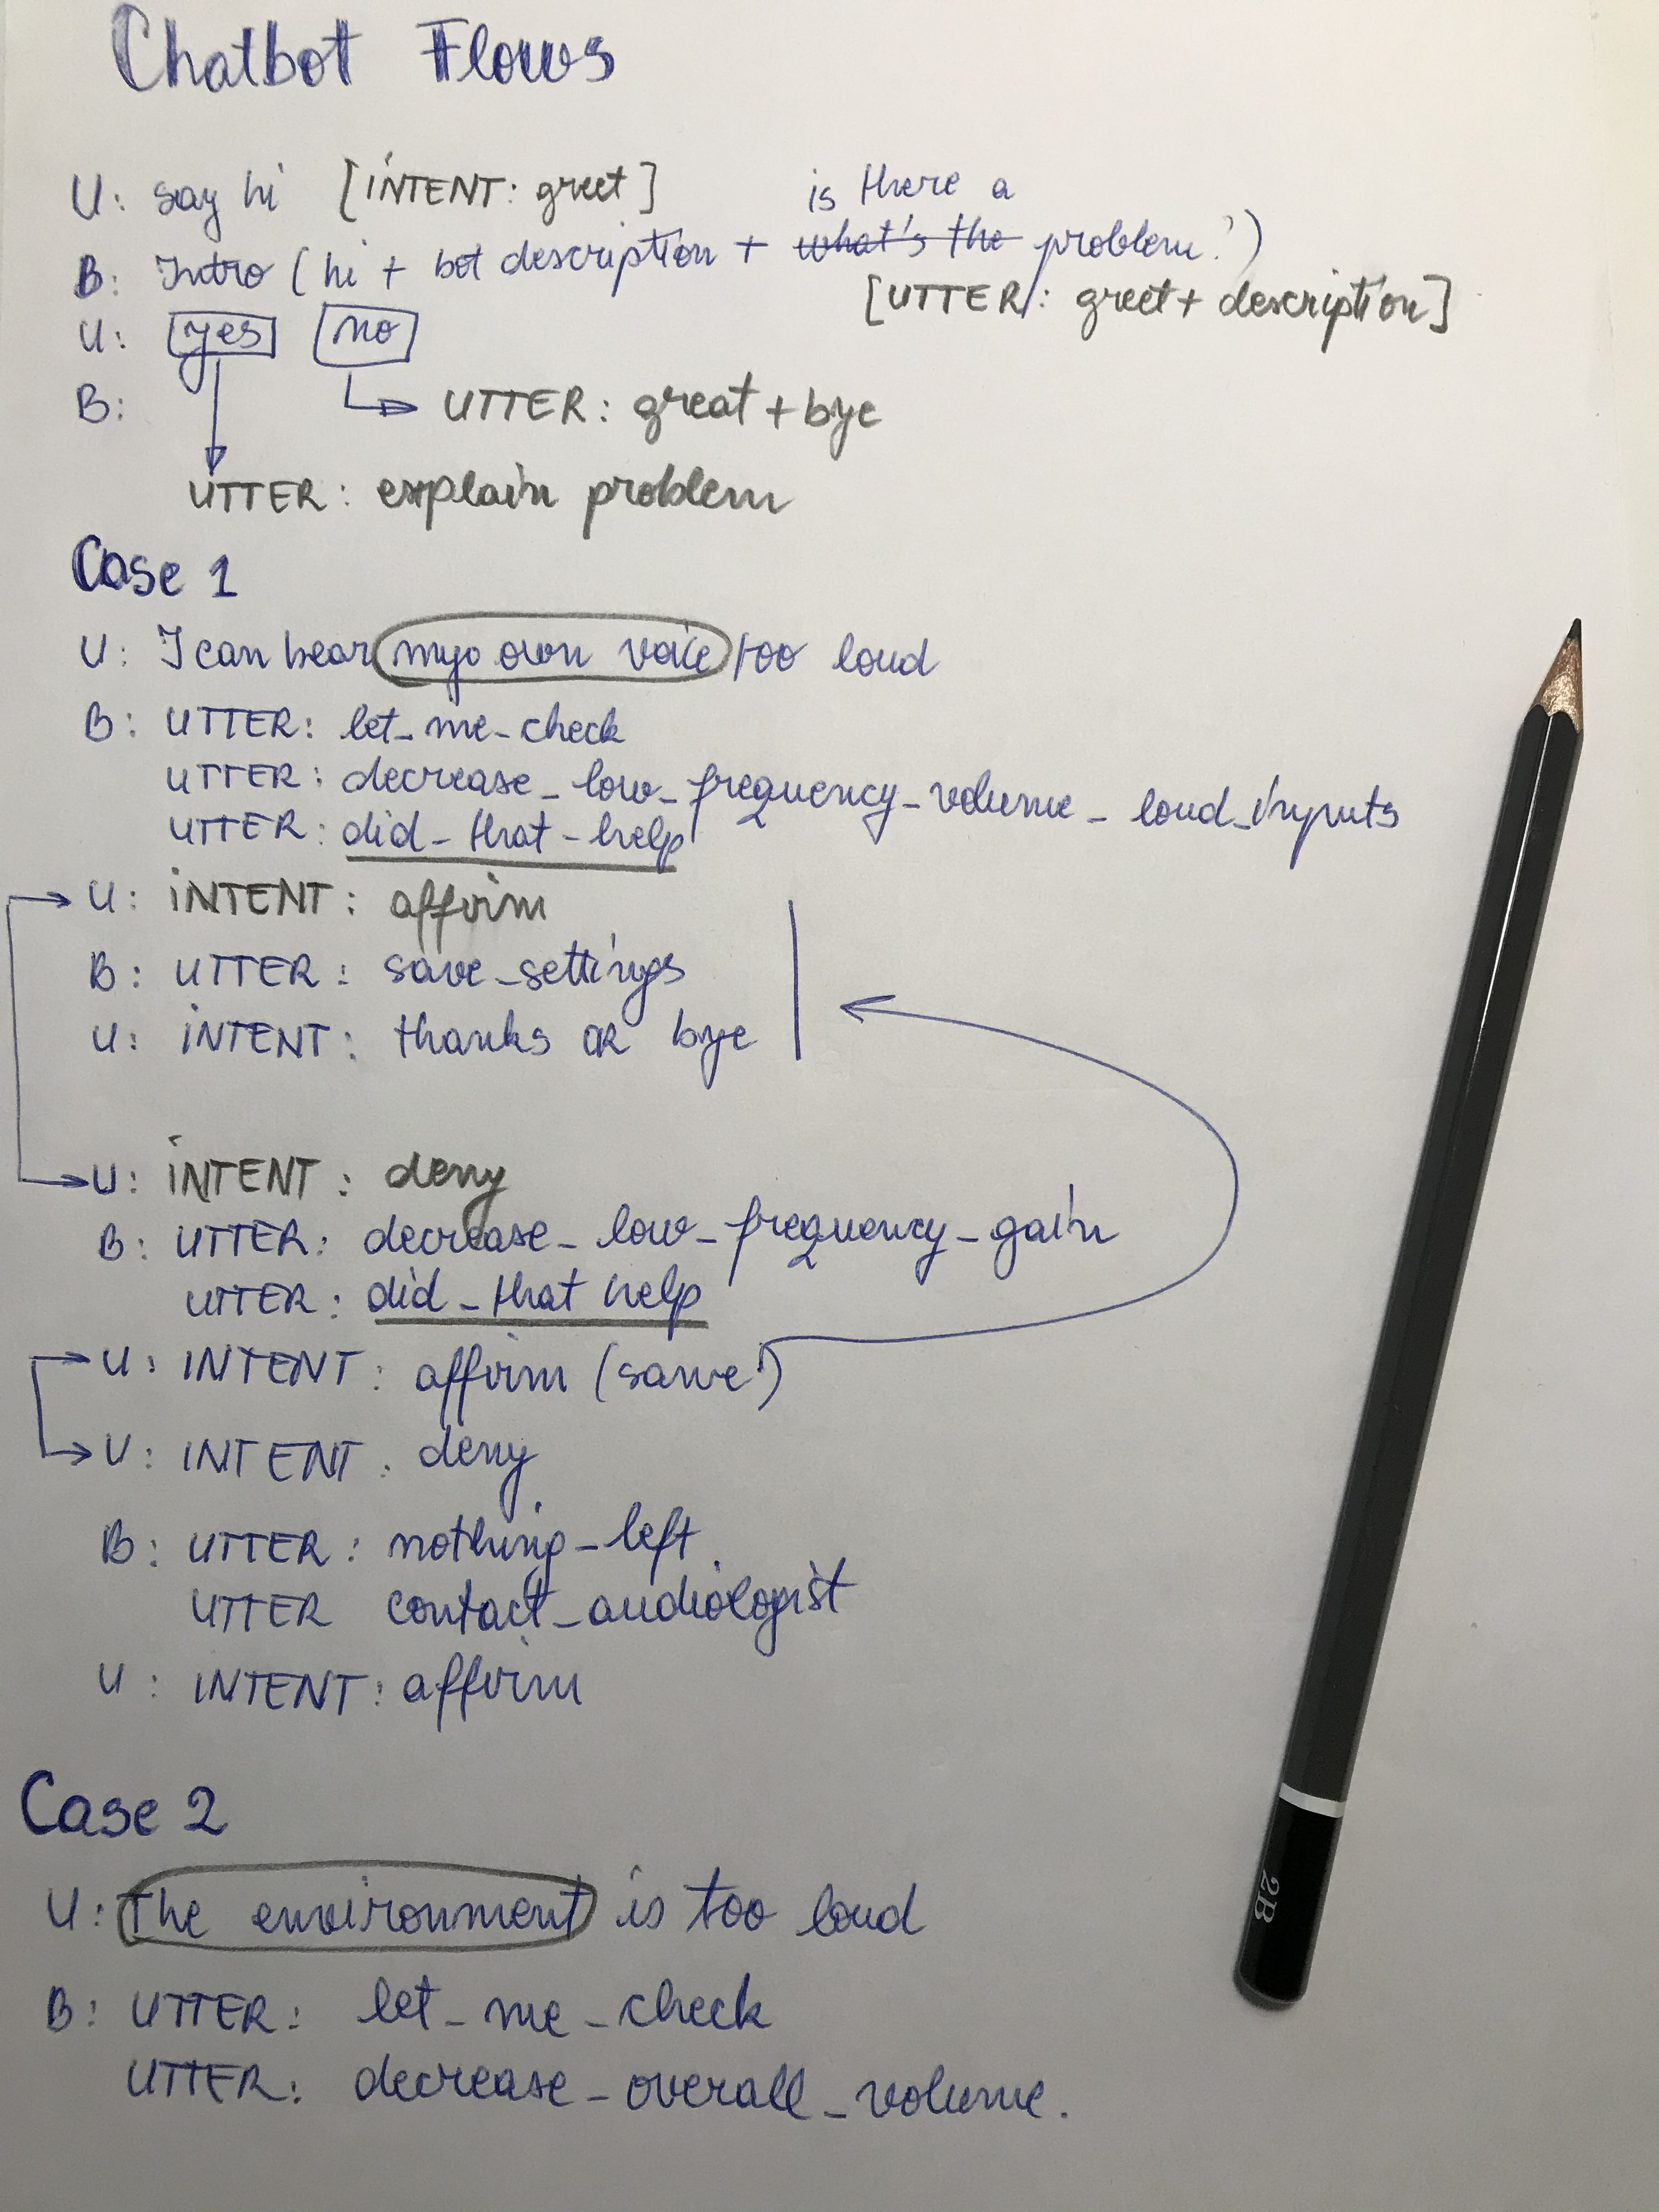 Chatbot Flows
U: say hi [INTENT: greet]
is there a
B: Intro (hi + bot description + what's the problem?)
[UTTER: greet + description]
U: yes no
B:
UTTER: great + bye
UTTER: explain problem
Case 1
U: I can hear my own voice too loud
B: UTTER: let_me_check
UTTER: decrease_low_frequency_volume_loud_inputs
UTTER: did_that_help
U: INTENT: affirm
B: UTTER: save_settings
U: INTENT: thanks OR bye
U: INTENT: deny
B: UTTER: decrease_low_frequency_gain
UTTER: did_that help
U: INTENT: affirm (same!)
U: INTENT: deny
B: UTTER: nothing_left
UTTER contact_audiologist
U: INTENT: affirm
Case 2
U: The environment is too loud
B: UTTER: let_me_check
UTTER: decrease_overall_volume.
2B